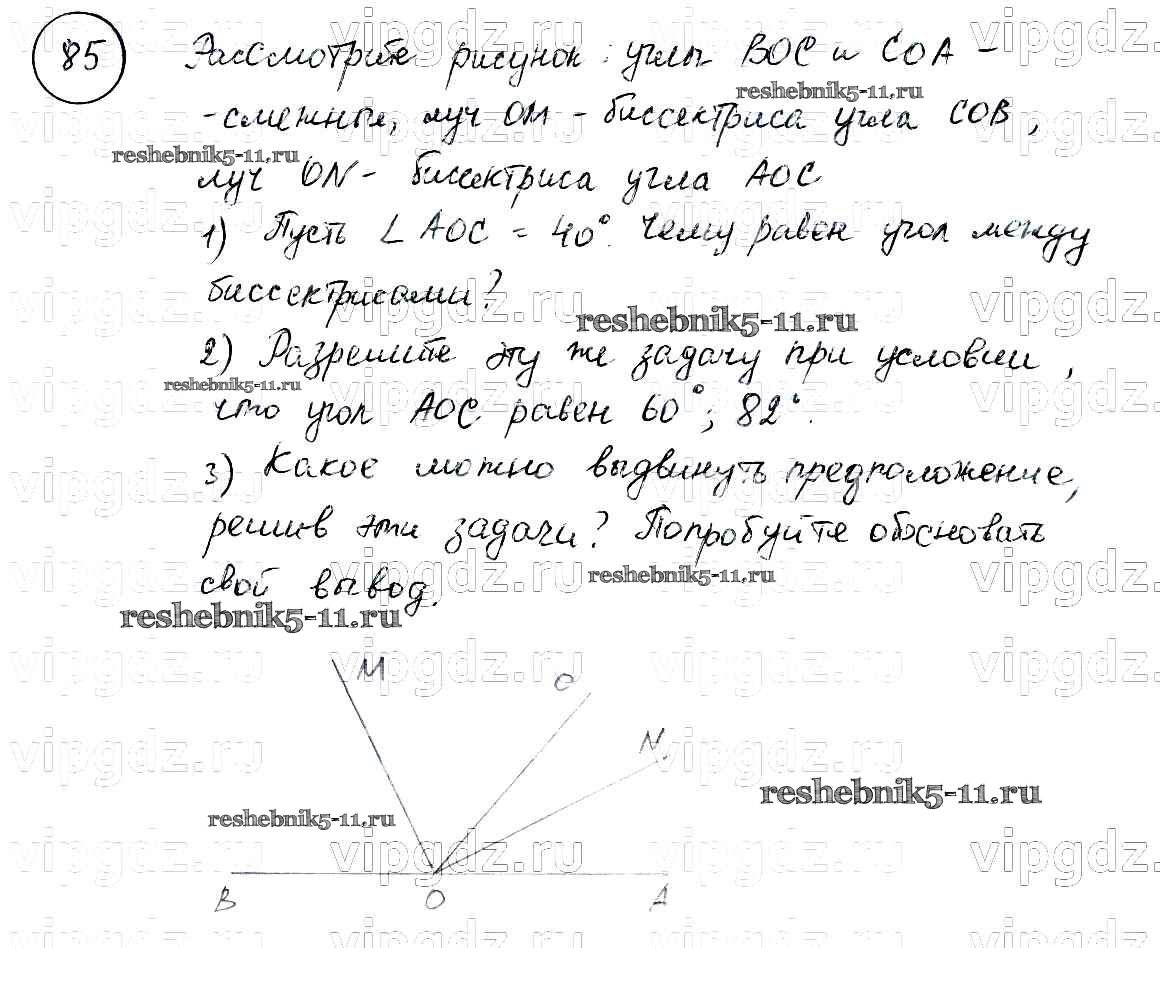 85 Рассмотрите рисунок: углы BOC и COA -
- смежные, луч OM - биссектриса угла COB,
луч ON - биссектриса угла AOC
1) Пусть ∠ AOC = 40°. Чему равен угол между
биссектрисами?
2) Разрешите эту же задачу при условии,
что угол AOC равен 60°; 82°.
3) Какое можно выдвинуть предположение,
решив эти задачи? Попробуйте обосновать
свой вывод.
M
C
N
B O A
reshebnik5-11.ru
vipgdz.ru